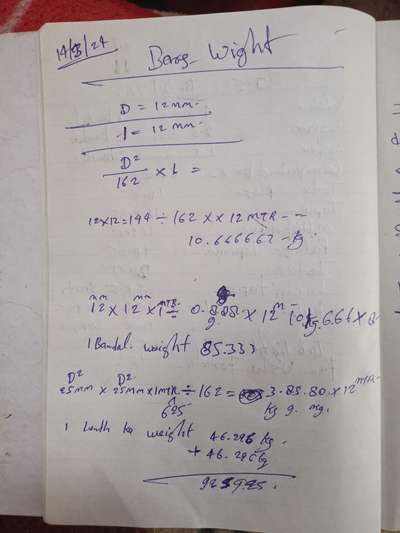 14/5/24
Bars Wight
D = 12mm
l = 12mm
D²
162 × L =
12×12=144 ÷ 162 × × 12 MTR -
10.666667 - kg.
mm mm MTR
12 × 12 × 1 = 0.888 × 12 m 10 kg.666 × 8
1 Bandal. weight 85.333
D² D²
25mm × 25mm × 1MTR. ÷ 162 = 3.85.80.×12 MTR
625 kg g. mg.
1 Lenth ka weight 46.296 kg.
+ 46.296 kg